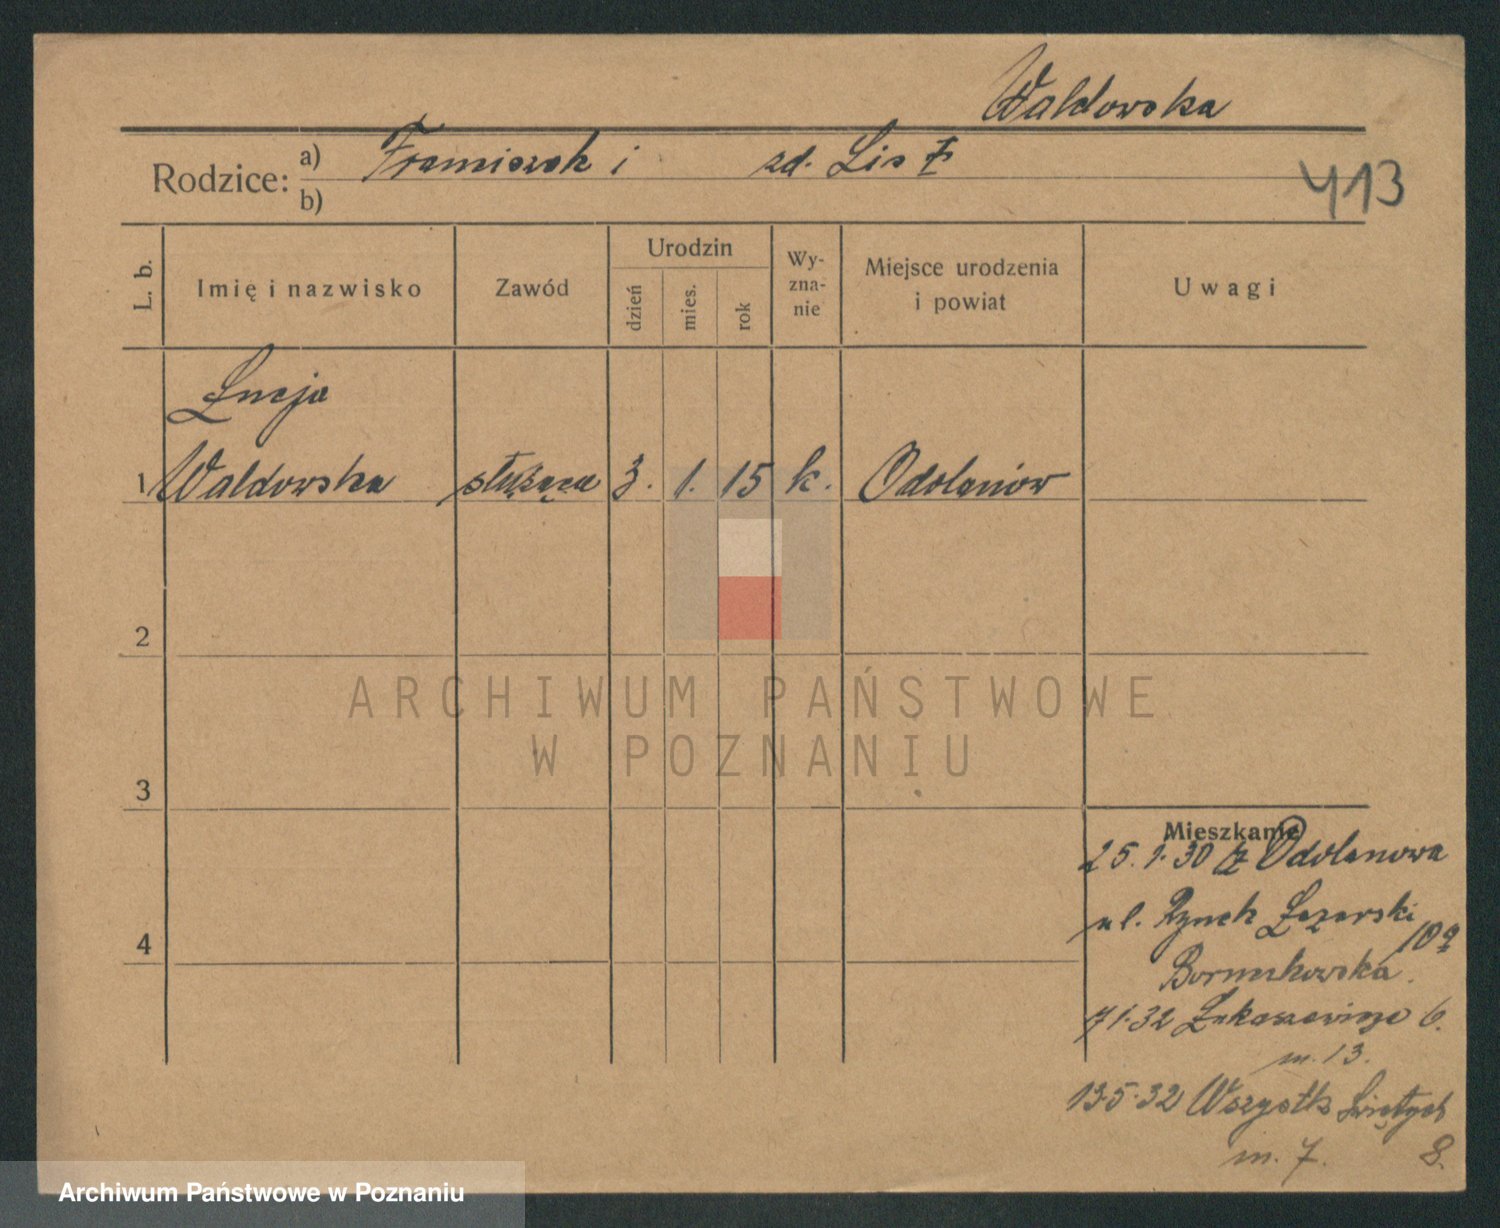 Waldowska
Rodzice: a) Franciszek i zd. Lis
b)
413
L. b.
Imię i nazwisko
Zawód
Urodzin
dzień
mies.
rok
Wy-
zna-
nie
Miejsce urodzenia
i powiat
Uwagi
Łucja
1 Waldowska służąca 3. 1. 15 k. Odolanów
2
ARCHIWUM PAŃSTWOWE
W POZNANIU
3
Mieszkanie
25.1.30 z Odolanowa
ul. Rynek Łazarski
10a
7.1.32 Łukaszewicza 6.
m. 13.
13.5.32 Wszystk Świętych
m. 7. 8.
4
Archiwum Państwowe w Poznaniu